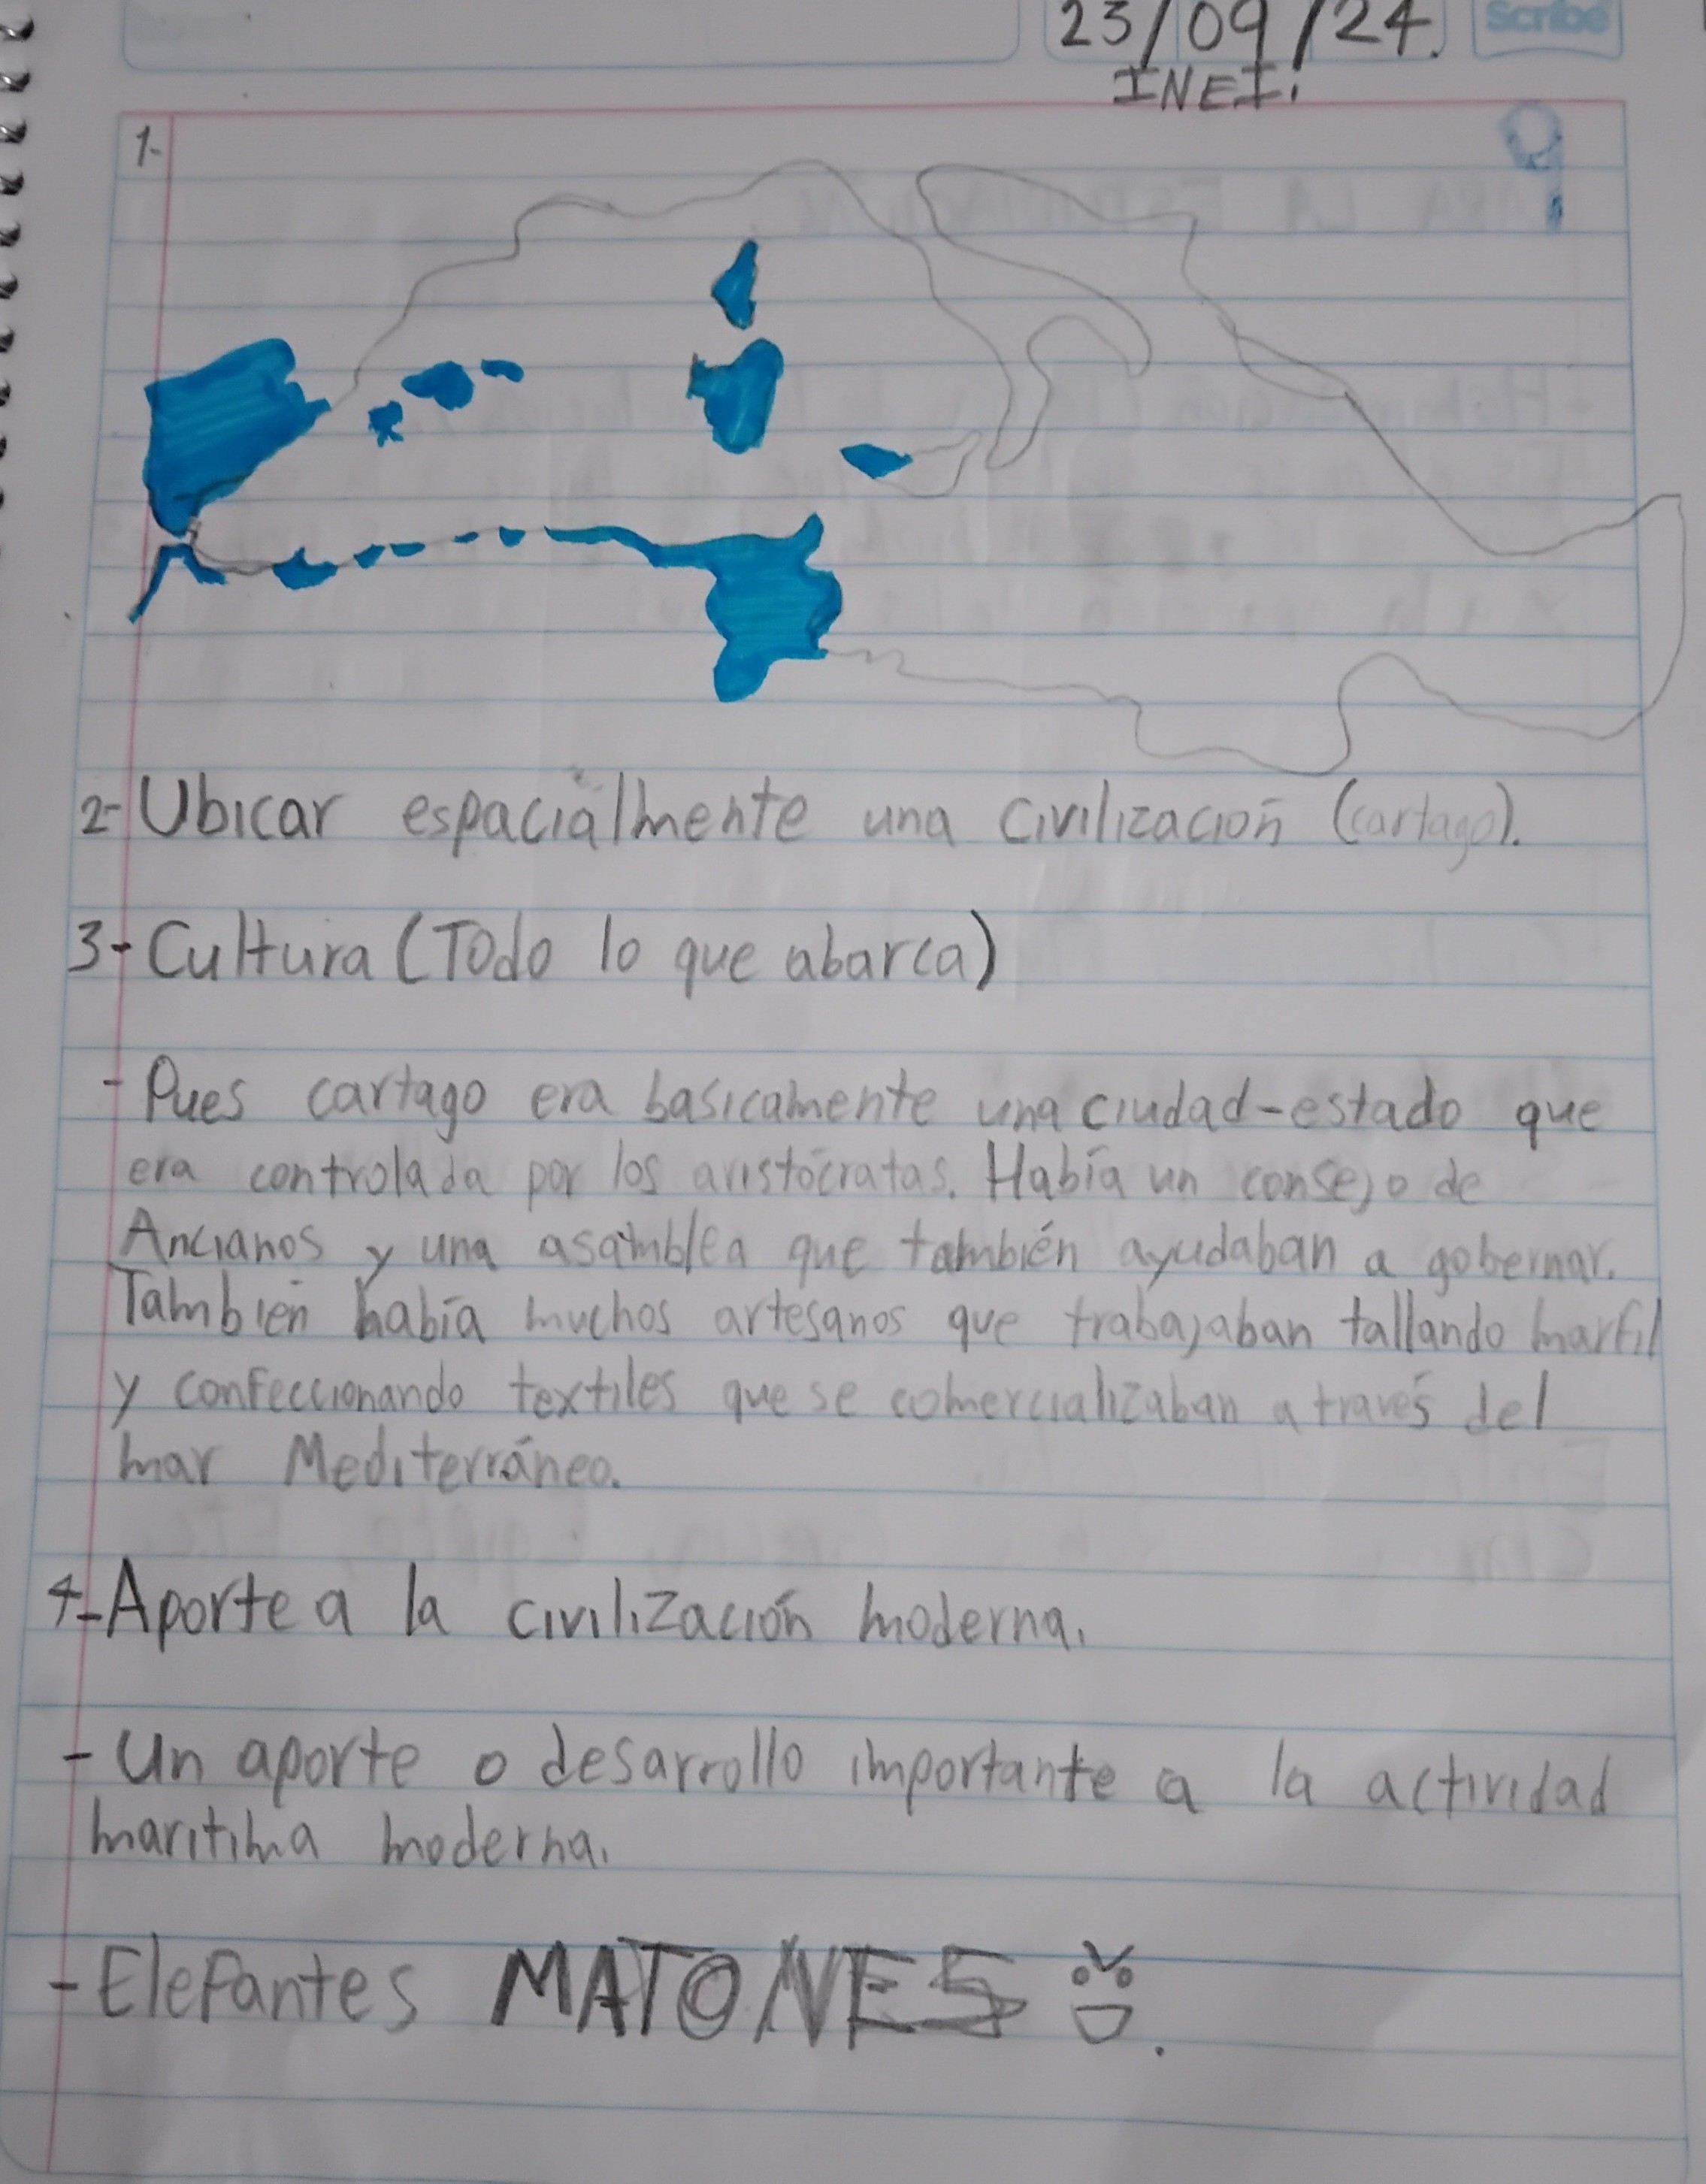 23/09/24.
Scribe
INEI.
1-
2- Ubicar espacialmente una civilización (cartago).
3- Cultura (Todo lo que abarca)
- Pues cartago era basicamente una ciudad-estado que
era controlada por los aristócratas. Había un consejo de
Ancianos y una asamblea que también ayudaban a gobernar.
También había muchos artesanos que trabajaban tallando marfil
y confeccionando textiles que se comercializaban a través del
mar Mediterráneo.
4- Aporte a la civilización moderna.
- Un aporte o desarrollo importante a la actividad
maritima moderna.
- Elefantes MATONES